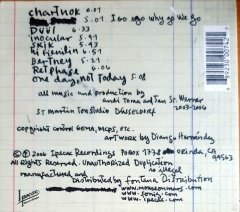 chartnok 6.07
5.07 I go ego why go we go
DUUL 6.33
inocular 5.47
SKIK 4.43
hi fienilin 6.51
Bertney 5.21
Retphase 6.06
one day, not today 5.08
all music and production by
andi Toma and Jan St. Werner
ST martin Tonstudio DÜSSELDORF 2003-2006
copyrights control GEMA, MCPS, ETC.
artwork by Diango Hernandez
2006 Ipecac Recordings PO Box 1778 ORINDA, CA
All Rights Reserved. Unauthorized Duplication 94563
is illegal
manufactured and Distributed by fontana Distribution
www.mouseonmars.com
www.sonig.com
www.ipecac.com
Ipecac
6 89230 00742 3